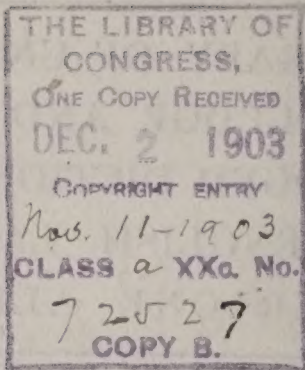 THE LIBRARY OF
CONGRESS,
ONE COPY RECEIVED
DEC. 2 1903
COPYRIGHT ENTRY
Nov. 11-1903
CLASS a XXc. No.
72527
COPY B.